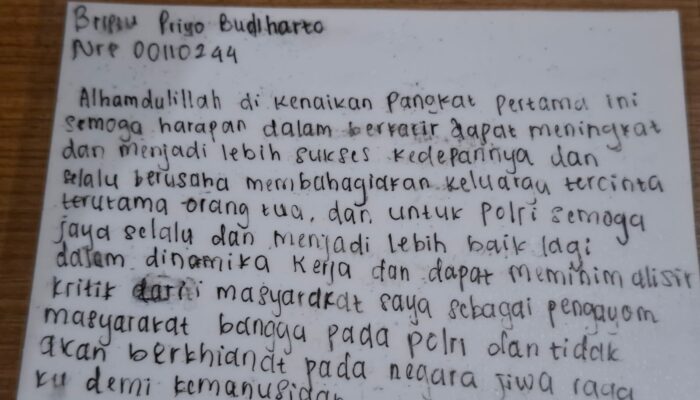 Briptu Priyo Budiharto
Nrp 00110244
Alhamdulillah di kenaikan pangkat pertama ini
semoga harapan dalam berkarir dapat meningkat
dan menjadi lebih sukses kedepannya dan
selalu berusaha membahagiakan keluarga tercinta
terutama orang tua, dan untuk polri semoga
jaya selalu dan menjadi lebih baik lagi
dalam dinamika kerja dan dapat meminim alisir
kritik dari masyarakat saya sebagai pengayom
masyarakat bangga pada polri dan tidak
akan berkhianat pada negara jiwa raga
ku demi kemanusiaan